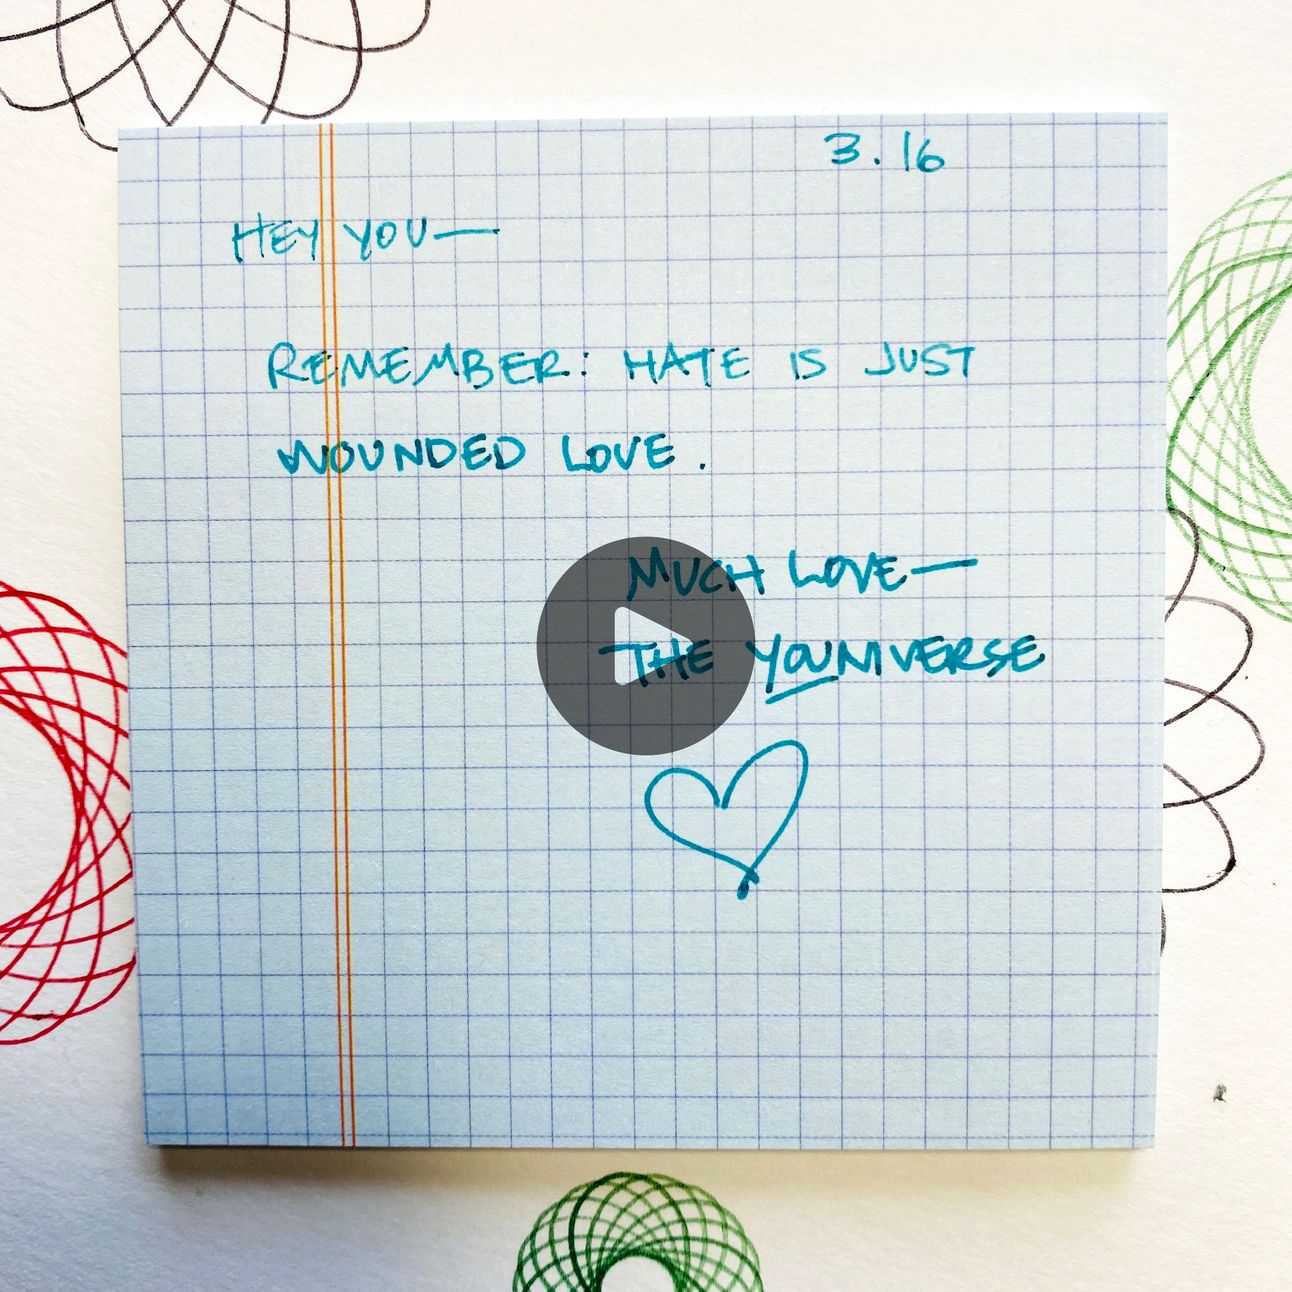 3.16
HEY YOU—
REMEMBER: HATE IS JUST
WOUNDED LOVE.
MUCH LOVE—
THE YOUNIVERSE